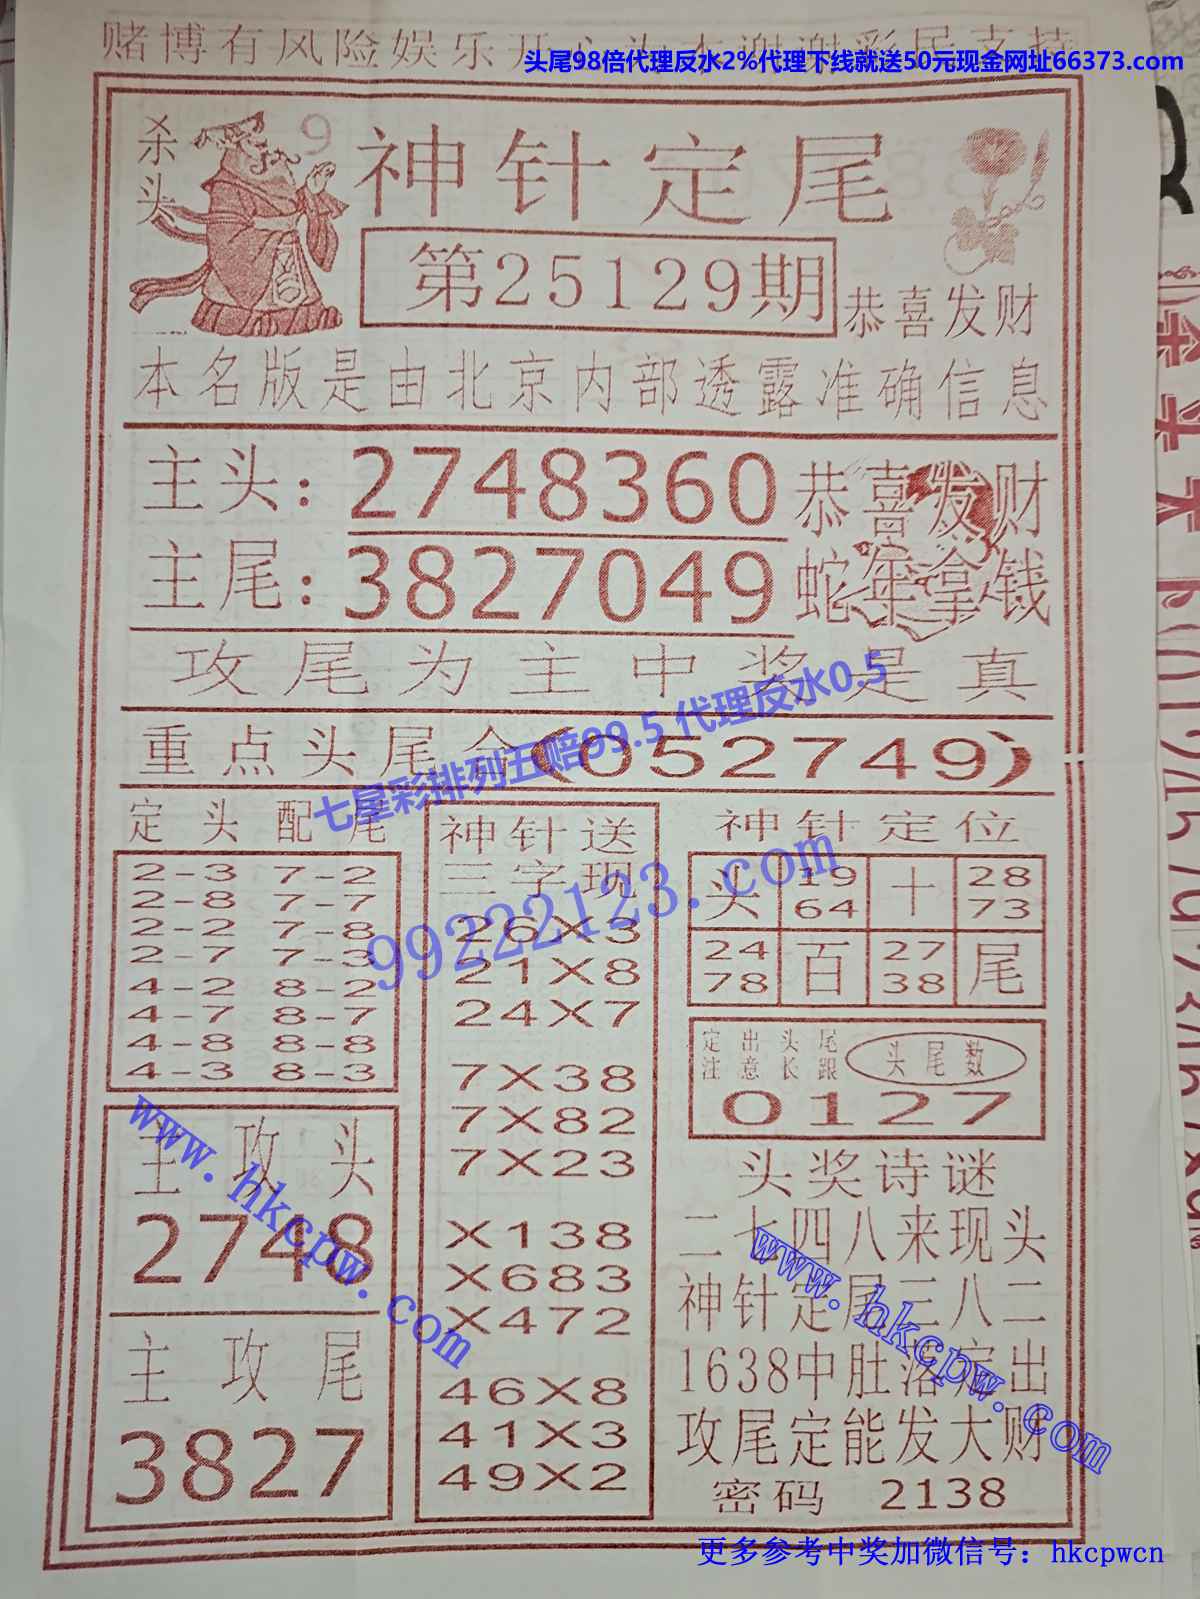 赌博有风险娱乐开心为本谢谢彩民支持
头尾98倍代理反水2%代理下线就送50元现金网址66373.com
杀头
9
神针定尾
第25129期
恭喜发财
本名版是由北京内部透露准确信息
主头:2748360
恭喜发财
主尾:3827049
蛇年拿钱
攻尾为主中奖是真
重点头尾合(052749)
七星彩排列五赔99.5 代理反水0.5
99222123.com
定头配尾
2-3 7-2
2-8 7-7
2-2 7-8
2-7 7-3
4-2 8-2
4-7 8-7
4-8 8-8
4-3 8-3
主攻头
2748
主攻尾
3827
神针送
三字现
26X3
21X8
24X7
7X38
7X82
7X23
X138
X683
X472
46X8
41X3
49X2
神针定位
头 19 十 28
64 73
24 百 27 尾
78 38
定出头尾
注意长跟
头尾数
0127
头奖诗谜
二七四八来现头
神针定尾三八二
1638中肚落定出
攻尾定能发大财
密码 2138
www.hkcpw.com
www.hkcpw.com
更多参考中奖加微信号：hkcpwcn